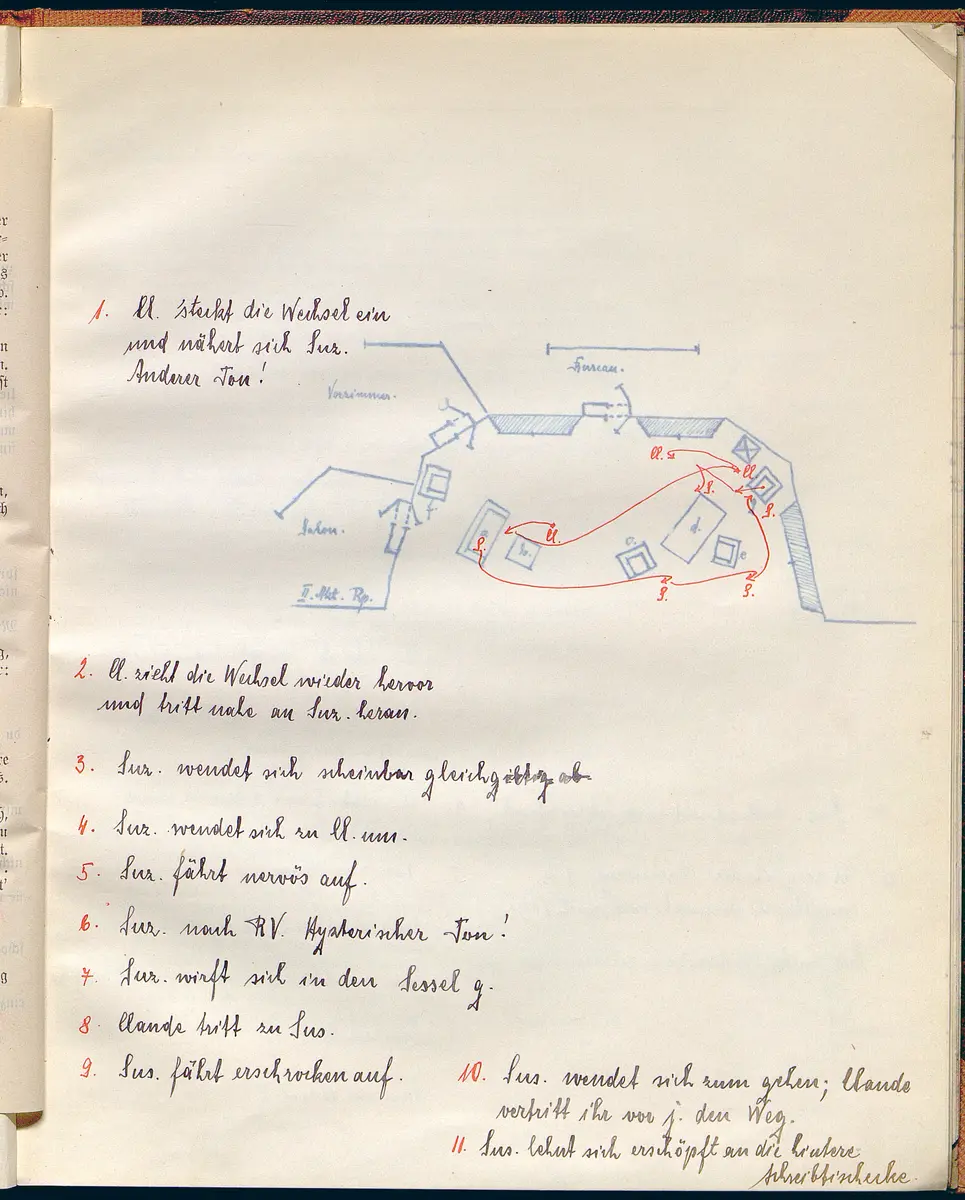 1. Cl. steckt die Wechsel ein
und nähert sich Suz.
Anderer Ton!
Bureau.
Vorzimmer.
Cl.
Cl.
S.
S.
f
Salon.
S.
b.
Cl.
c.
d.
e
S.
S.
II. Akt. Rp.
2. Cl. zieht die Wechsel wieder hervor
und tritt nahe an Suz. heran.
3. Suz. wendet sich scheinbar gleichgiltig ab
4. Suz. wendet sich zu Cl. um.
5. Suz. fährt nervös auf.
6. Suz. nach RV. Hysterischer Ton!
7. Suz. wirft sich in den Sessel g.
8. Claude tritt zu Sus.
9. Sus. fährt erschrocken auf.
10. Sus. wendet sich zum gehen; Claude
vertritt ihr vor j. den Weg.
11. Sus. lehnt sich erschöpft an die hintere
Schreibtischecke.